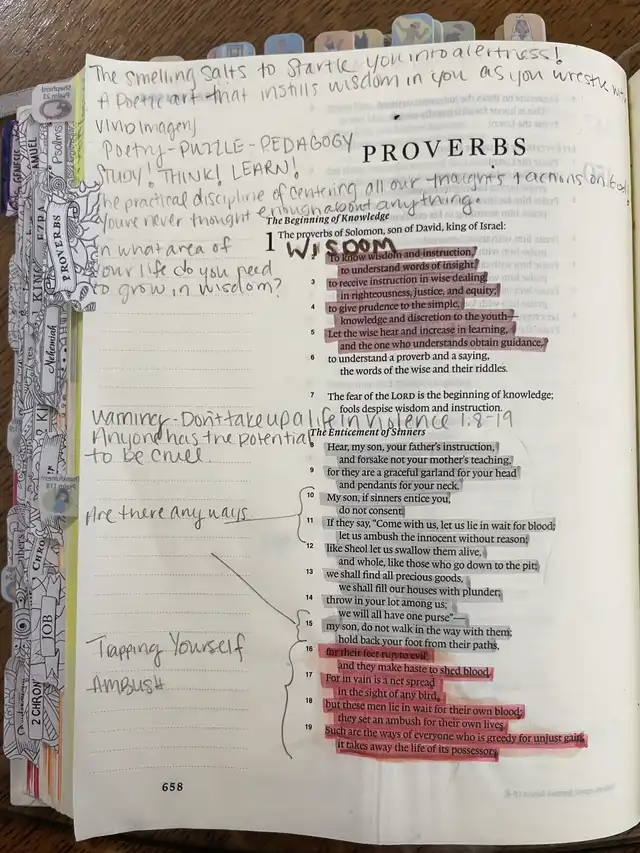 The smelling salts to startle you into alertness!
A Poetic art that instills wisdom in you as you wrestle with
vivid imagery
Poetry-PUZZLE-PEDAGOGY
STUDY! THINK! LEARN!
The practical discipline of centering all our thoughts & actions on God.
You're never thought enough about anything.
In what area of
your life do you need
to grow in wisdom?
PROVERBS
The Beginning of Knowledge
1 The proverbs of Solomon, son of David, king of Israel:
WISDOM
To know wisdom and instruction,
to understand words of insight,
3 to receive instruction in wise dealing,
in righteousness, justice, and equity;
4 to give prudence to the simple,
knowledge and discretion to the youth—
5 Let the wise hear and increase in learning,
and the one who understands obtain guidance,
6 to understand a proverb and a saying,
the words of the wise and their riddles.
7 The fear of the LORD is the beginning of knowledge;
fools despise wisdom and instruction.
Warning-Don't take up a life in violence 1:8-19
Anyone has the potential
to be cruel.
The Enticement of Sinners
8 Hear, my son, your father's instruction,
and forsake not your mother's teaching,
9 for they are a graceful garland for your head
and pendants for your neck.
10 My son, if sinners entice you,
do not consent.
Are there any ways
11 If they say, "Come with us, let us lie in wait for blood;
let us ambush the innocent without reason;
12 like Sheol let us swallow them alive,
and whole, like those who go down to the pit;
13 we shall find all precious goods,
we shall fill our houses with plunder;
14 throw in your lot among us;
we will all have one purse"—
15 my son, do not walk in the way with them;
hold back your foot from their paths,
Trapping Yourself
AMBUSH
16 for their feet run to evil,
and they make haste to shed blood.
17 For in vain is a net spread
in the sight of any bird,
18 but these men lie in wait for their own blood;
they set an ambush for their own lives.
19 Such are the ways of everyone who is greedy for unjust gain;
it takes away the life of its possessors.
658
Shepherd
Psalm 23
Psalms
EZRA
PROVERBS
Nehemiah
Psalm 118
JOB
2 CHRON